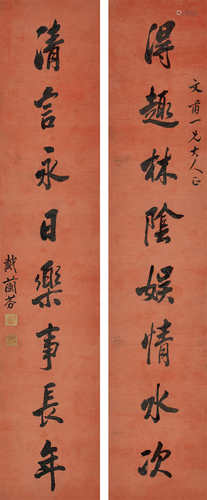 文甫一兄大人正
得趣林陰娛情水次
清言永日樂事長年
戴蘭芬